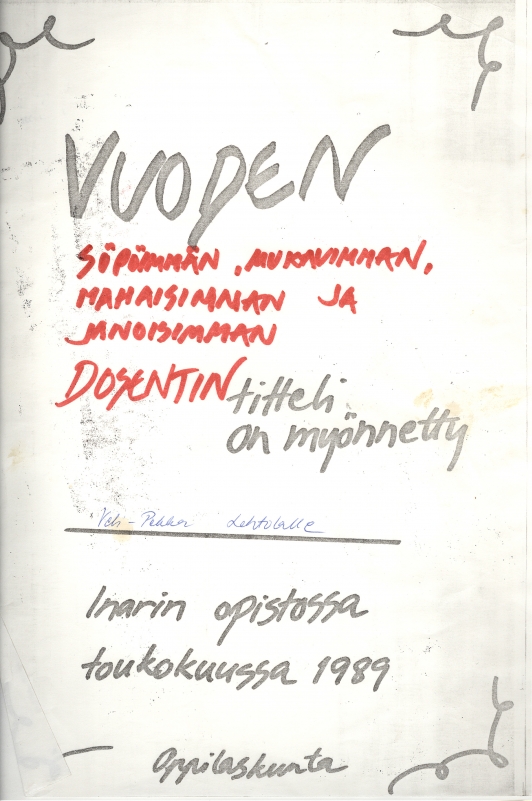 VUODEN
SÖPÖMMÄN, MUKAVIMMAN,
MAHAISIMMAN JA
JANOISIMMAN
DOSENTIN titteli
on myönnetty
Veli-Pekka Lehtolalle
Inarin opistossa
toukokuussa 1989
Oppilaskunta